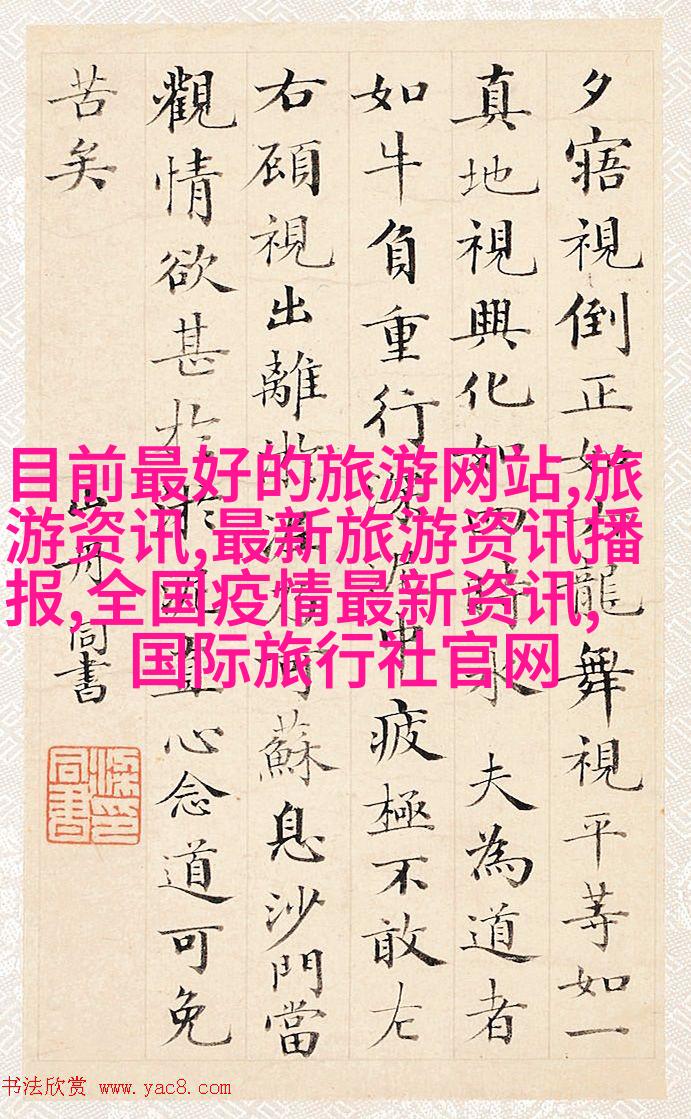 夕寤視倒正如六龍舞視平等如一
真地視興化如四時木 夫為道者
如牛負重行深泥中疲極不敢左
右顧視出離淤泥乃可蘇息沙門當
觀情欲甚於淤泥直心念道可免
苦矣
山舟同書
梁印同書
目前最好的旅游网站,旅
游资讯,最新旅游资讯播
报,全国疫情最新资讯,
国际旅行社官网
书法欣赏 www.yac8.com